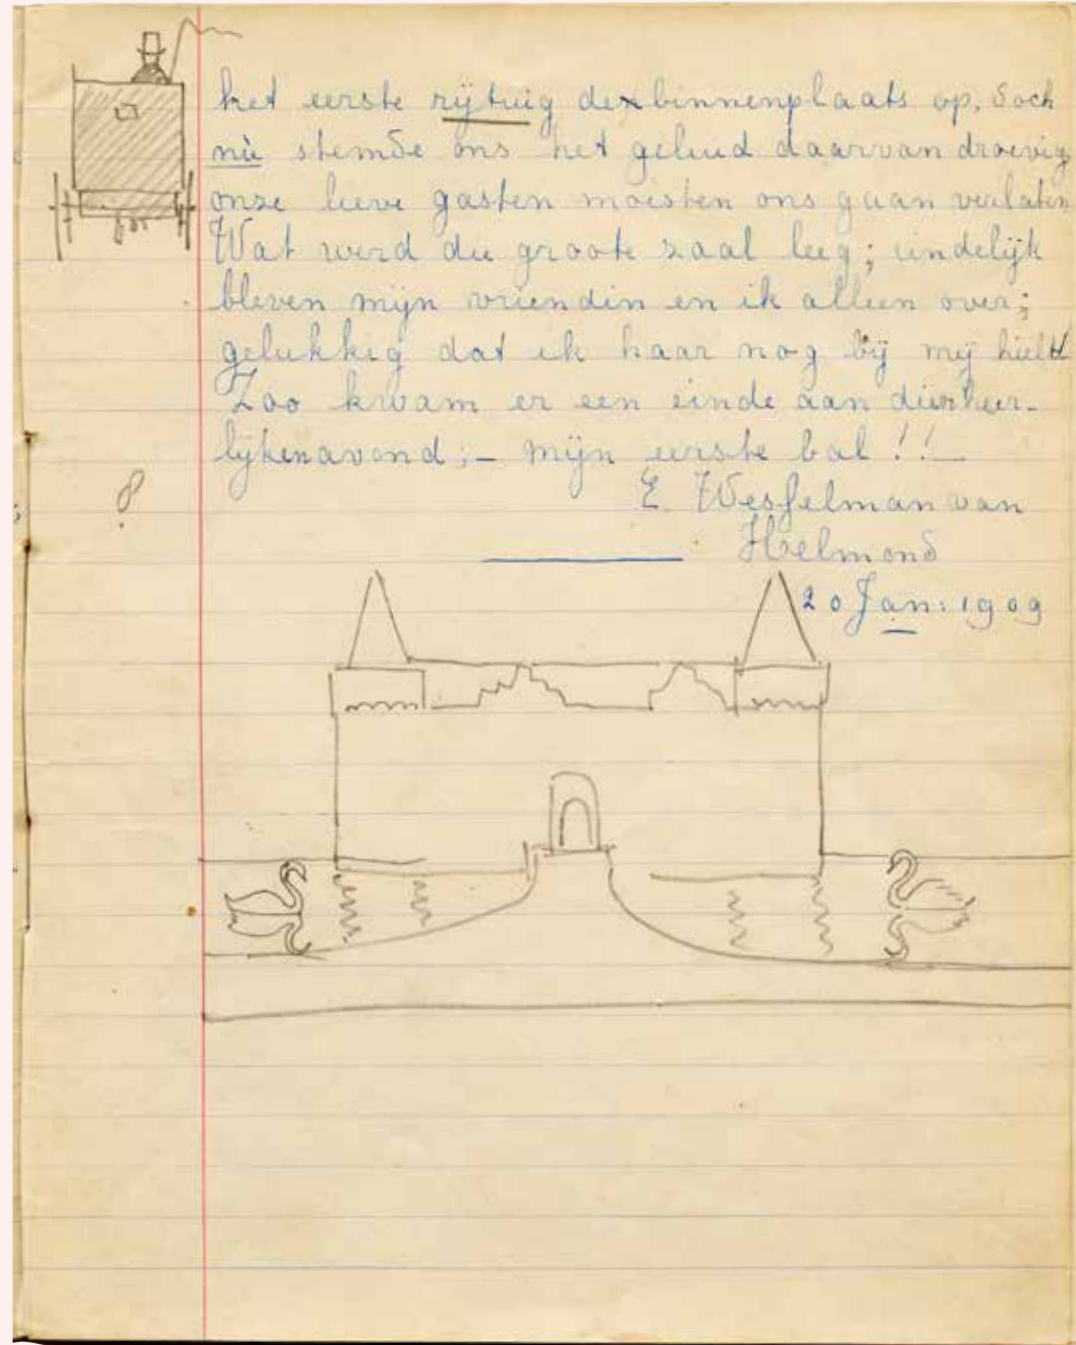 het eerste rijtuig de binnenplaats op, doch
nù stemde ons het geluid daarvan droevig,
onze lieve gasten moesten ons gaan verlaten
Wat werd die groote zaal leeg; eindelijk
bleven mijn vriendin en ik alleen over;
gelukkig dat ik haar nog bij mij hield
Zoo kwam er een einde aan dien heer-
lijken avond; – mijn eerste bal!! –
E. Wesselman van
Helmond
20 Jan: 1909